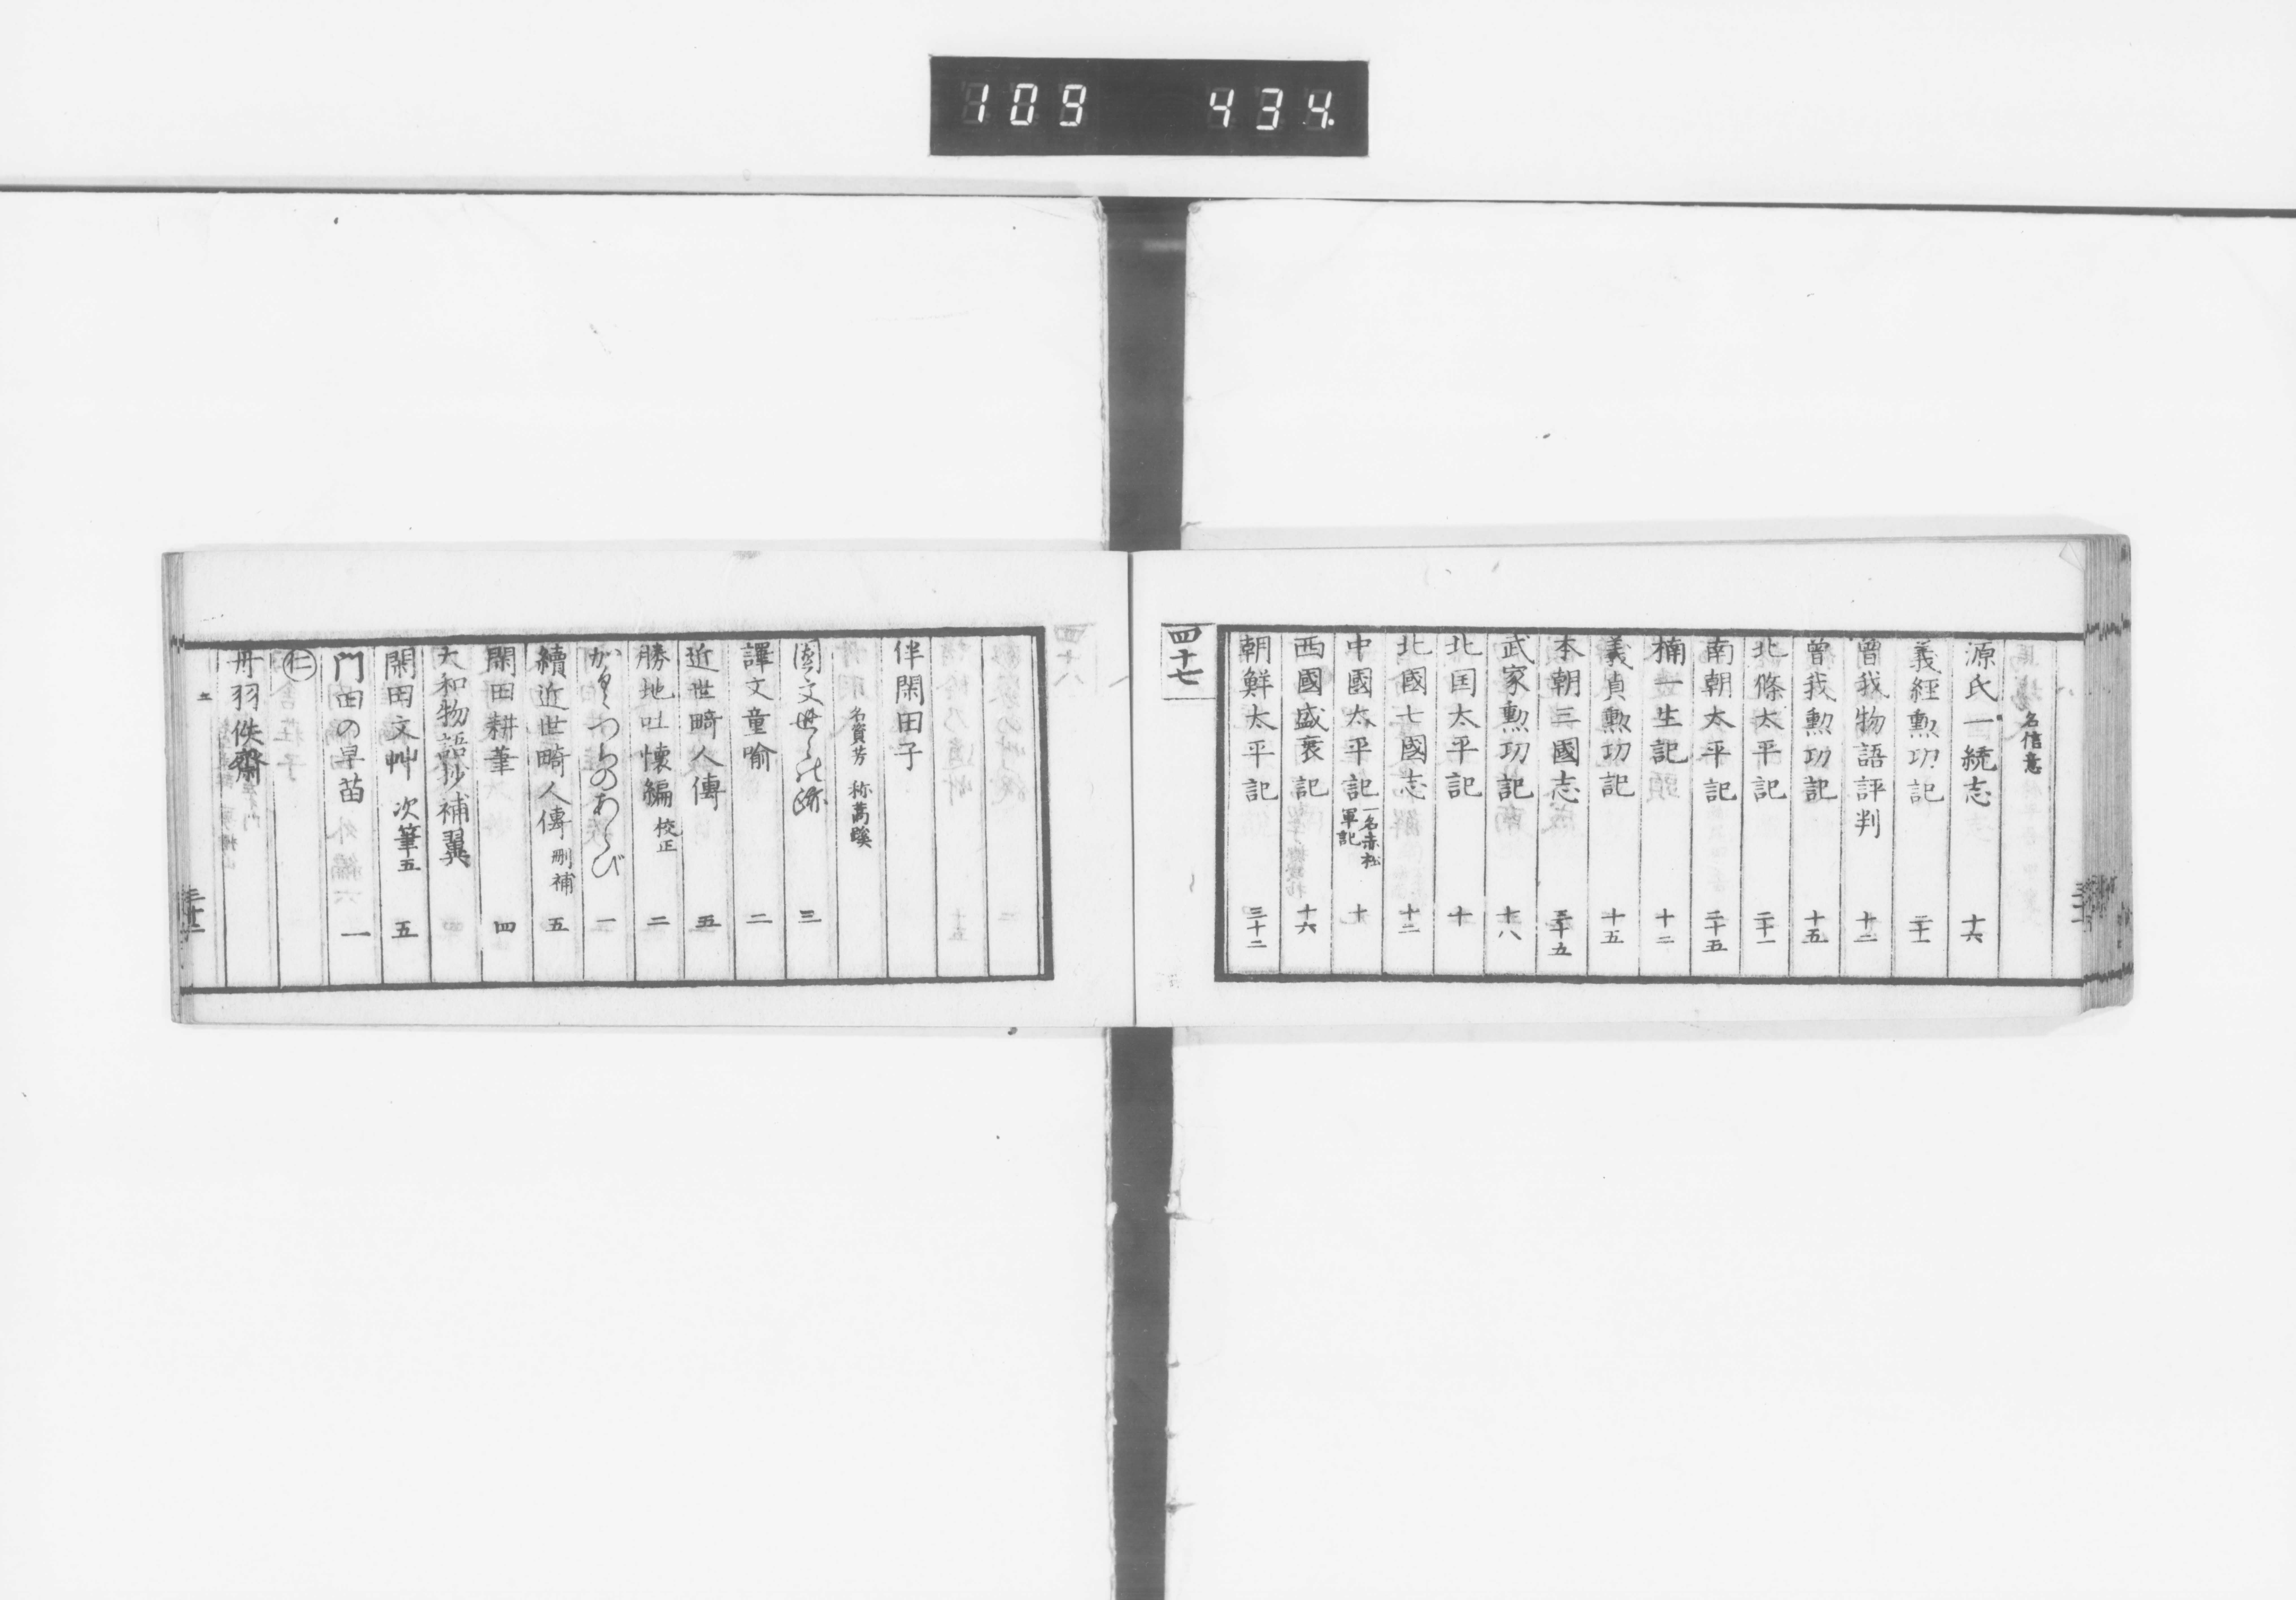 109 434.
名信意
源氏一統志 十六
義經勲功記 二十一
曾我物語評判 十二
曾我勲功記 十五
北條太平記 二十一
南朝太平記 二十五
楠一生記 十二
義貞勲功記 十五
本朝三國志
武家勲功記 十八
北国太平記 十
北國七國志 十二
中國太平記 一名赤松軍記 十
西國盛衰記 十六
朝鮮太平記 三十二
四十七
伴閑田子
名資芳 称蒿蹊
國文世々の跡 三
譯文童喻 二
近世畸人傳 五
勝地吐懷編 校正 二
かくつちのあらび 一
續近世畸人傳 刪補 五
閑田耕筆 四
大和物語抄補翼
閑田文艸 次筆五 五
門田の早苗 一
仁
丹羽佚齋